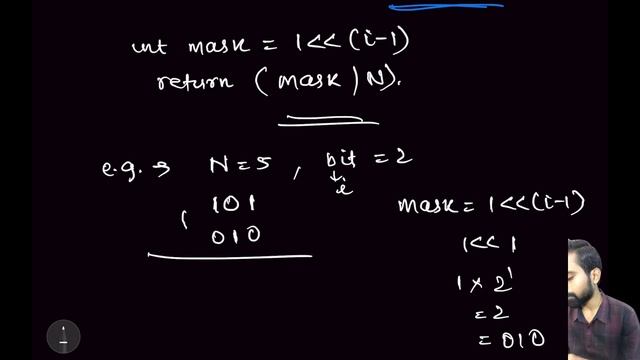 int mask = 1<<(i-1)
return (mask | N).
e.g. → N=5, bit = 2
↓
i
101
| 010
mask = 1<<(i-1)
1<< 1
1 × 2¹
= 2
= 010